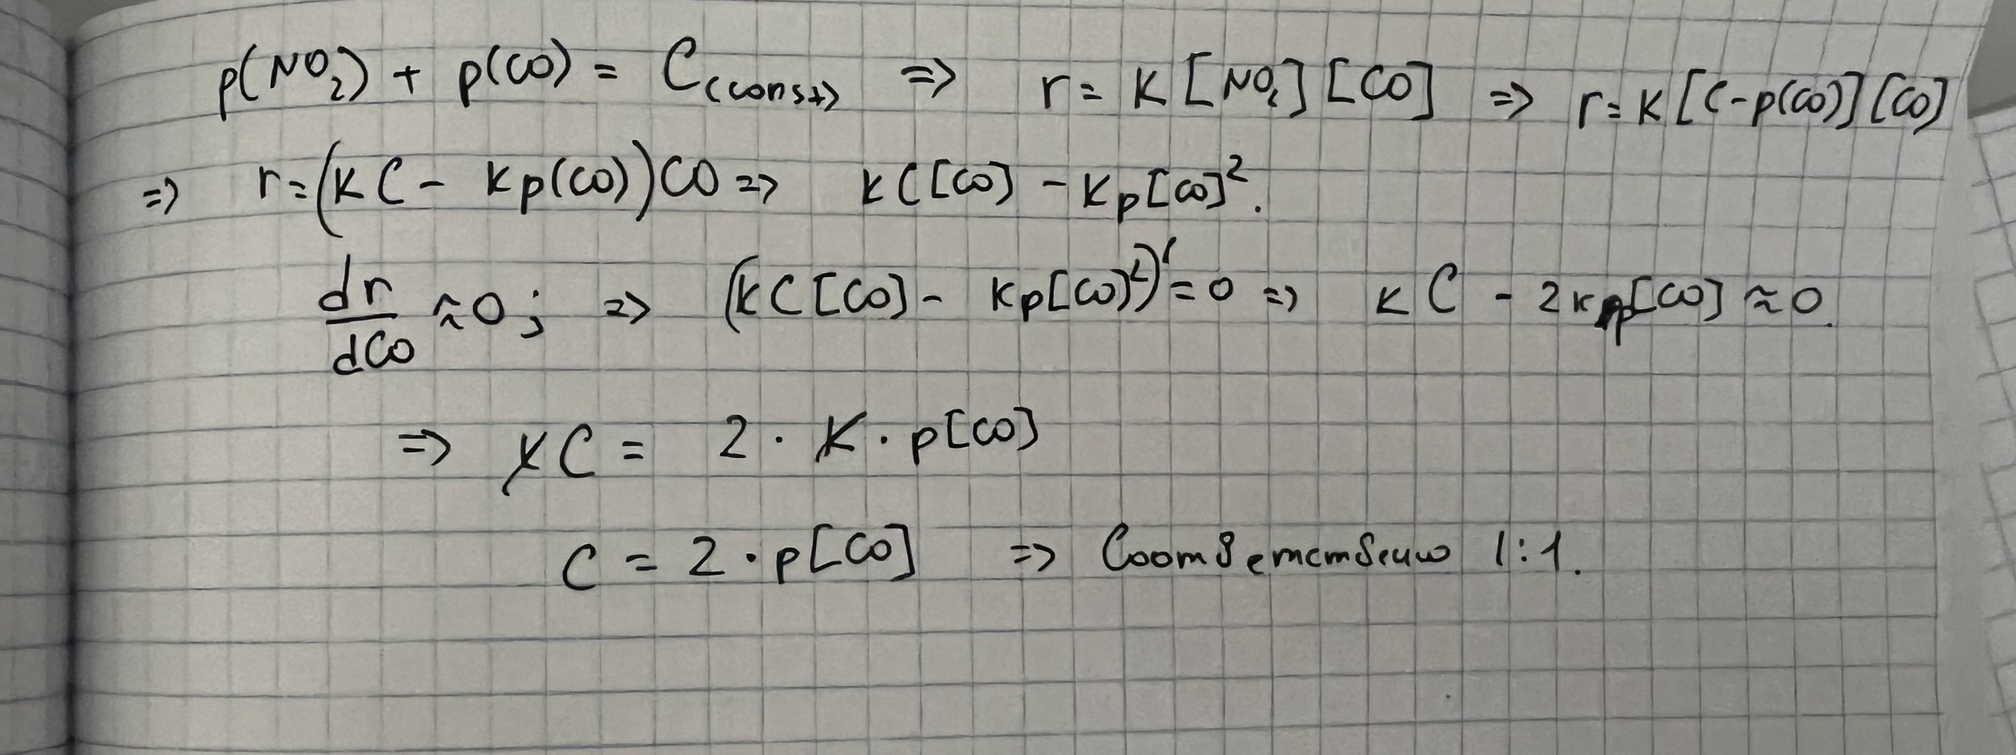 p(NO₂) + p(CO) = C(const) => r = K[NO₂][CO] => r = K[C-p(CO)][CO]
=> r = (KC - Kp(CO))CO => KC[CO] - Kp[CO]².
dr/dCO ≈ 0; => (KC[CO] - Kp[CO]²)' = 0 => KC - 2Kp[CO] ≈ 0.
=> KC = 2 · K · p[CO]
C = 2 · p[CO] => Соответствию 1:1.